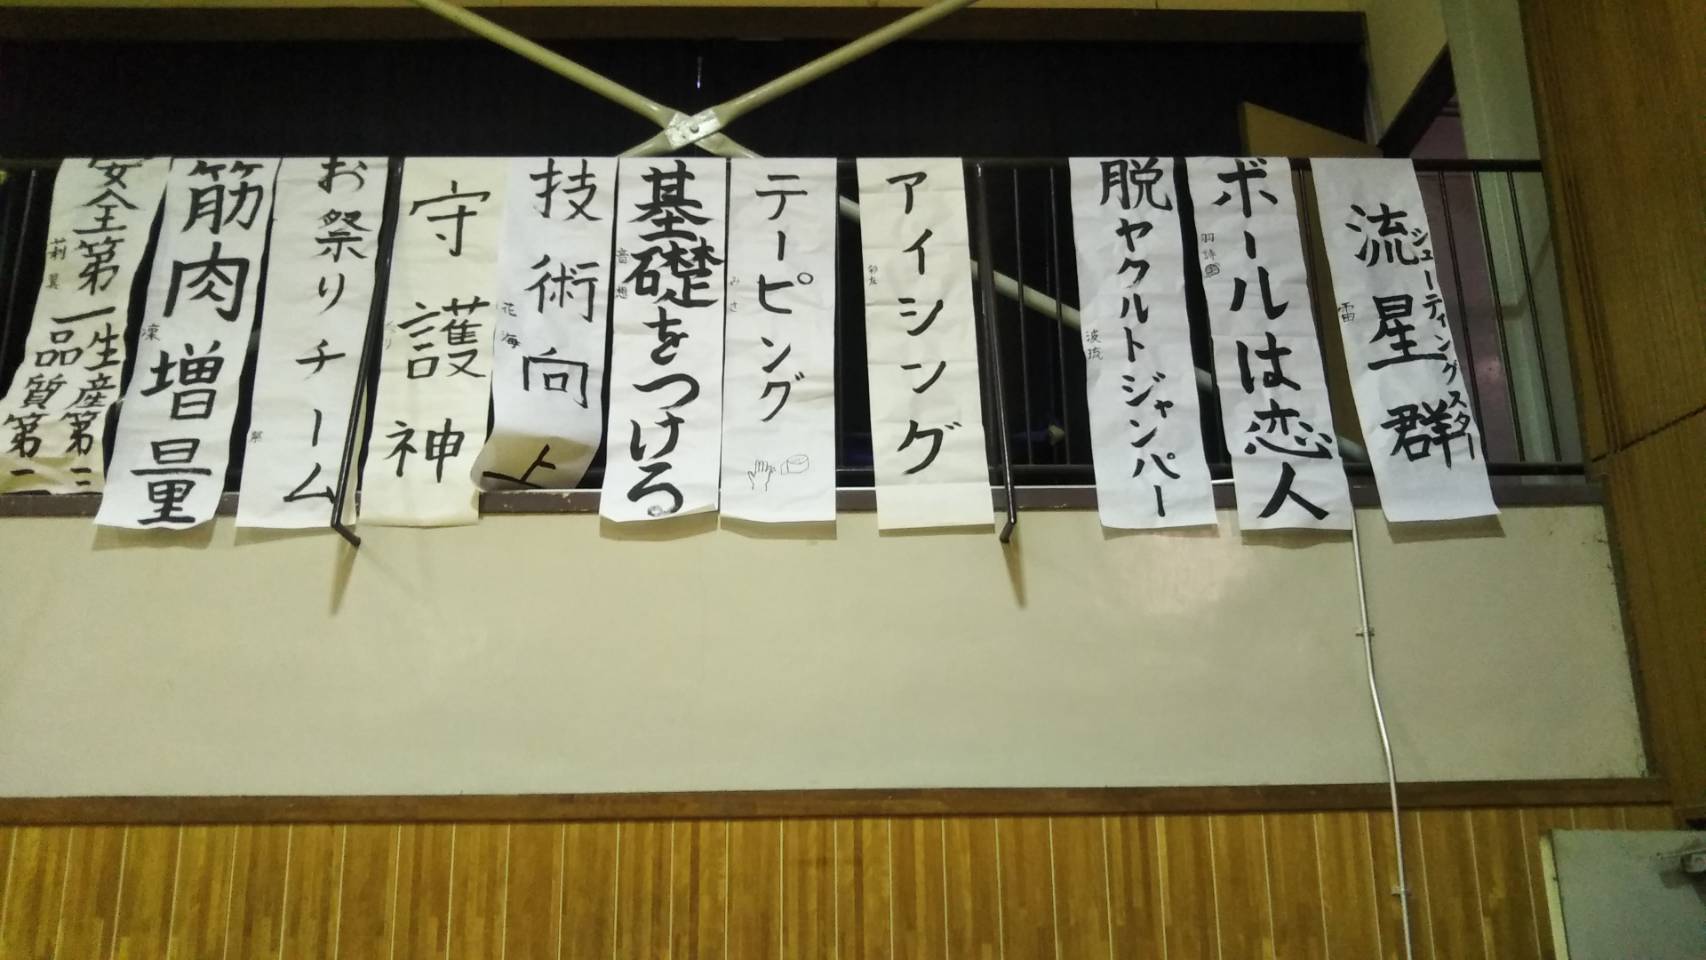 流星群
シューティングスター
雷
ボールは恋人
羽詩
脱ヤクルトジャンパー
波琉
アイシング
テーピング
みさ
基礎をつけろ
音想
技術向上
花海
守護神
お祭りチーム
筋肉増量
凜
安全第一生産第二
品質第一
莉翼